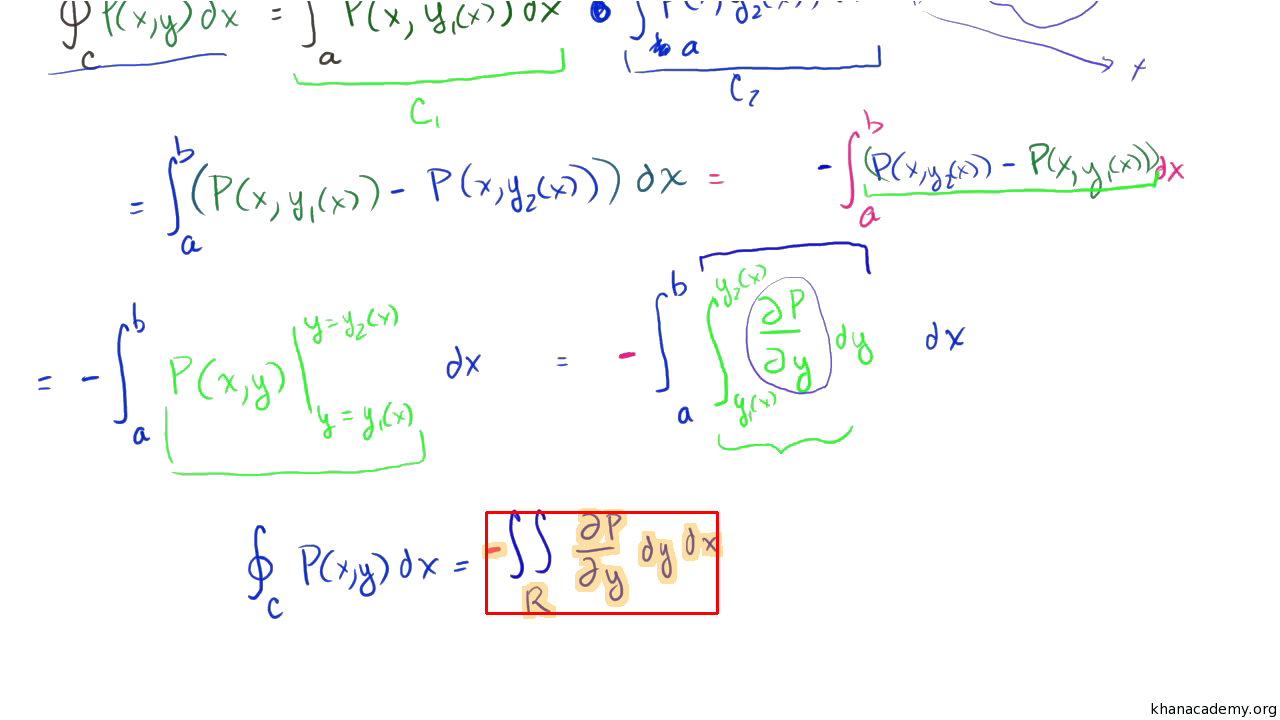 ∮_C P(x,y) dx = ∫_a P(x, y₁(x)) dx ∫_a P(x, y₂(x))
C₁ C₂ x
= ∫_a^b (P(x, y₁(x)) - P(x, y₂(x))) dx = - ∫_a^b (P(x, y₂(x)) - P(x, y₁(x))) dx
= - ∫_a^b P(x,y) |_{y = y₁(x)}^{y = y₂(x)} dx = - ∫_a^b ∫_{y₁(x)}^{y₂(x)} ∂P/∂y dy dx
∮_C P(x,y) dx = - ∬_R ∂P/∂y dy dx
khanacademy.org